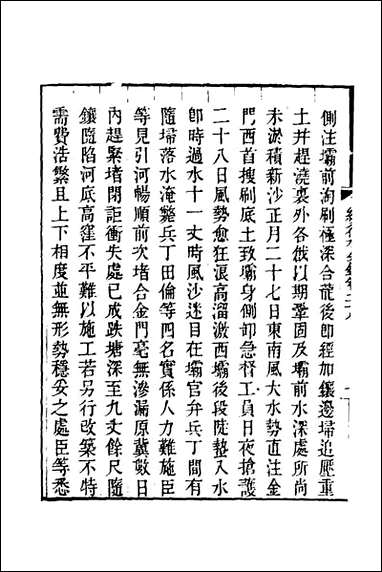 側注壩前淘刷極深合龍後卽經加鑲邊埽追壓重
土并趕澆裏外各戧以期鞏固及壩前水深處所尚
未淤積新沙正月二十七日東南風大水勢直注金
門西首搜刷底土致壩身側卸急督工員日夜搶護
二十八日風勢愈狂浪高溜激西壩後段陡蟄入水
卽時過水十一丈時風沙迷目在壩官弁兵丁間有
隨埽落水淹斃兵丁田倫等四名實係人力難施臣
等見引河暢順前次堵合金門毫無滲漏原冀數日
內趕緊堵閉詎衝失處已成跌塘深至九丈餘尺隨
鑲隨陷河底高窪不平難以施工若另行改築不特
需費浩繁且上下相度並無形勢穩妥之處臣等悉